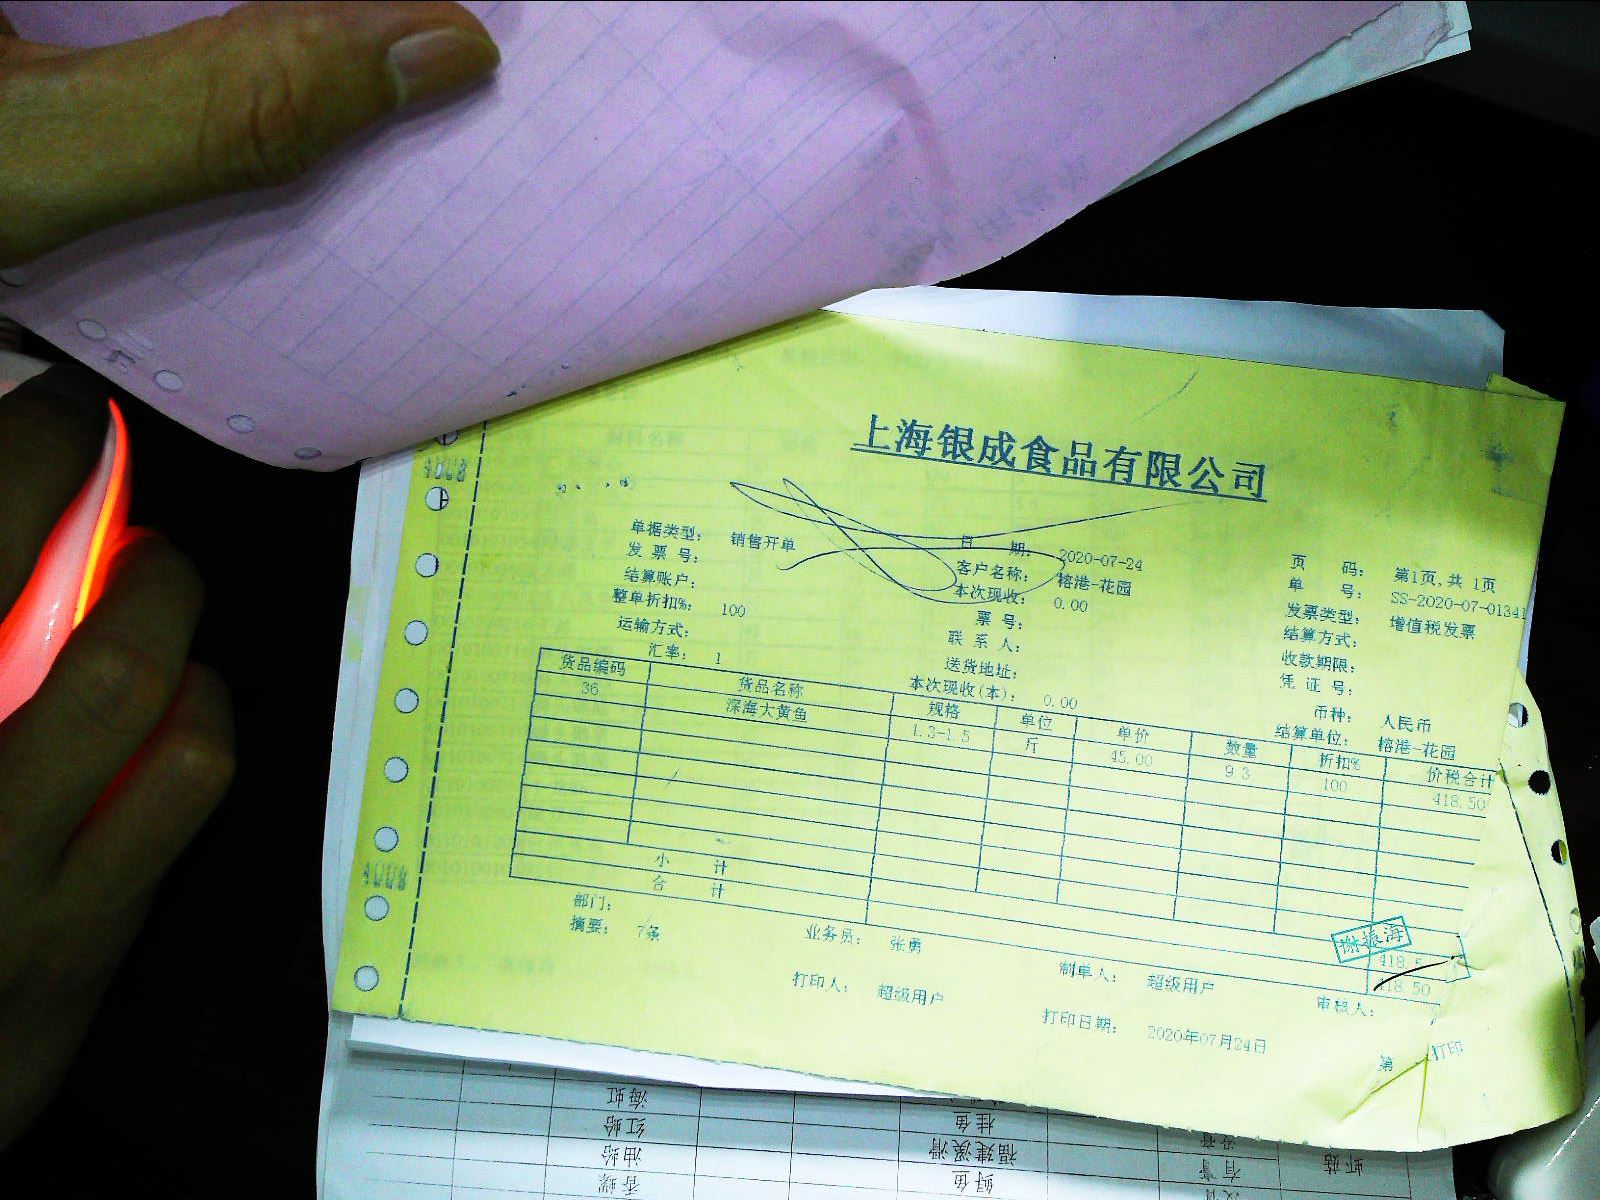 上海银成食品有限公司
单据类型： 销售开单 日 期： 2020-07-24 页 码： 第1页,共 1页
发 票 号： 客户名称： 榕港-花园 单 号： SS-2020-07-01341
结算账户： 本次现收： 0.00 发票类型： 增值税发票
整单折扣%： 100 票 号： 结算方式：
运输方式： 联 系 人： 收款期限：
汇率： 1 送货地址： 凭 证 号：
本次现收(本)： 0.00 币种： 人民币
结算单位： 榕港-花园
货品编码 货品名称 规格 单位 单价 数量 折扣% 价税合计
36 深海大黄鱼 1.3-1.5 斤 45.00 9.3 100 418.50
小 计 418.5
合 计 418.50
谢振海
部门：
摘要： 7条 业务员： 张勇 制单人： 超级用户 审核人：
打印人： 超级用户 打印日期： 2020年07月24日 第 打印
海虹
红蛤 桂鱼
油蛤 福建溪滑 虾菇
香螺 鲟鱼 有膏